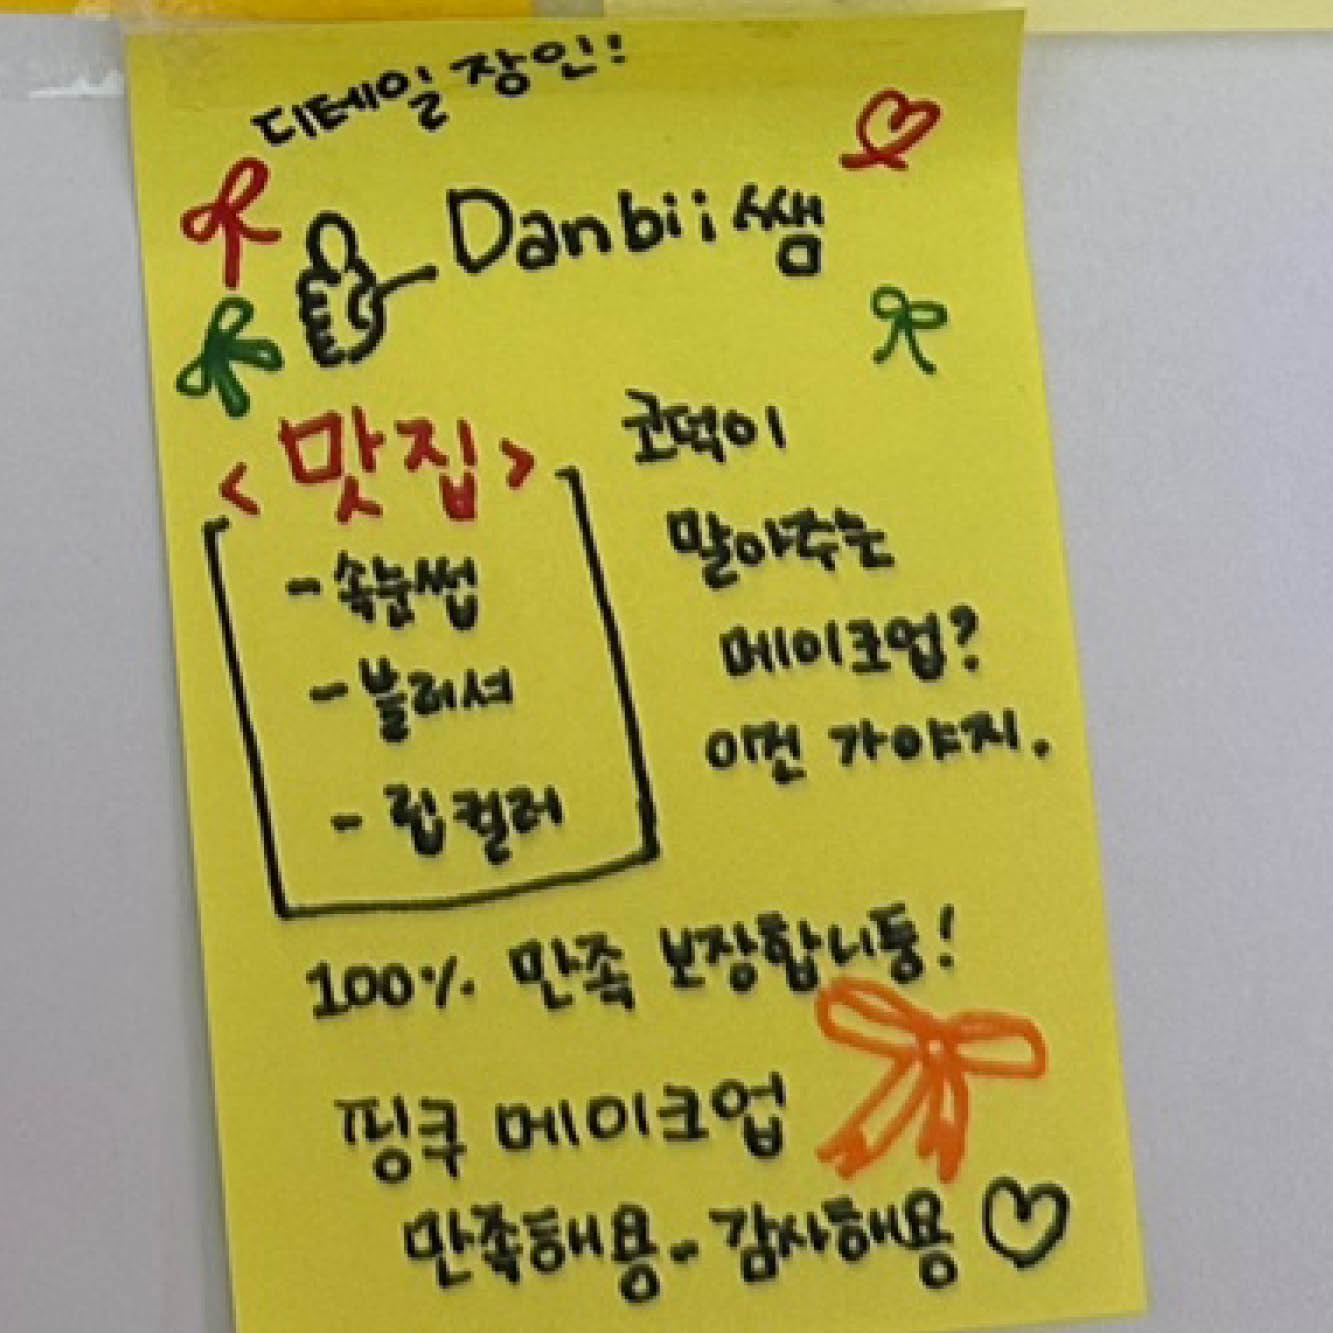 디테일 장인!
Danbii쌤
<맛집>
- 속눈썹
- 블러셔
- 립컬러
코덕이
말아주는
메이크업?
이건 가야지.
100% 만족 보장합니둥!
핑쿠 메이크업
만족해용~ 감사해용♡